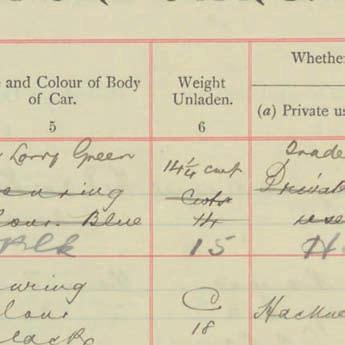 Whethe
e and Colour of Body
of Car.
Weight
Unladen.
(a) Private us
5
6
Lorry Green
14¼ cwt
Trade
ouring
Cwts
Privat
our. Blue
14
use
Blk
15
H
uring
C
lour
18
Hackne
lack